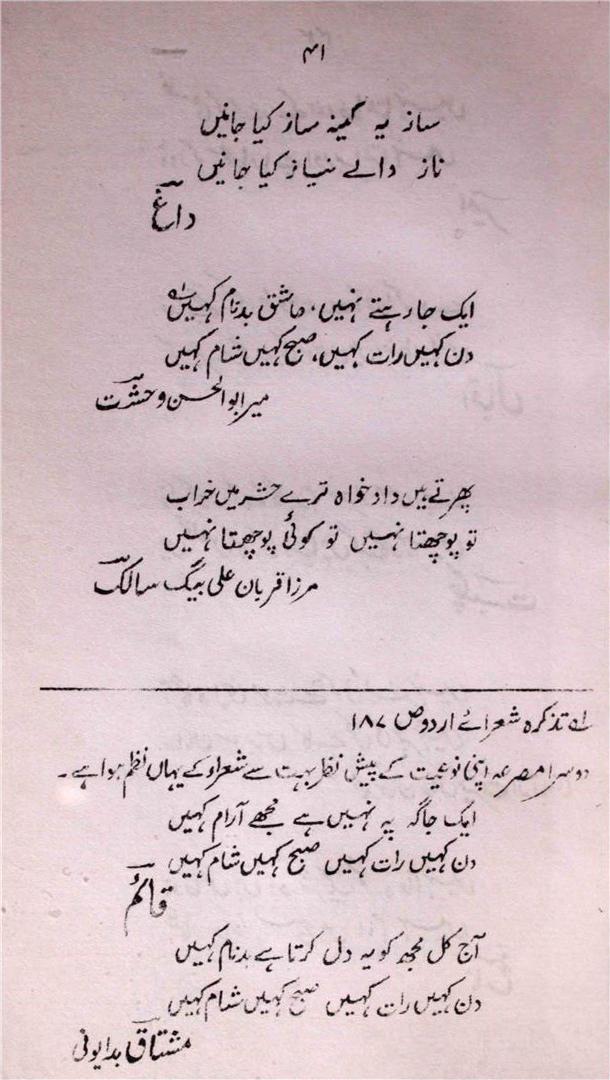 ۴۱
ساز یہ کینہ ساز کیا جانیں
ناز والے نیاز کیا جانیں
داغؔ
ایک جا رہتے نہیں، عاشق بدنام کہیں ۱ے
دن کہیں رات کہیں، صبح کہیں شام کہیں
میر ابوالحسن وحشتؔ
پھرتے ہیں داد خواہ ترے حشر میں خراب
تو پوچھتا نہیں تو کوئی پوچھتا نہیں
مرزا قربان علی بیگ سالکؔ
۱ے تذکرہ شعرائے اردو ص ۱۸۷
دوسرا مصرعہ اپنی نوعیت کے پیش نظر بہت سے شعراء کے یہاں نظم ہوا ہے۔
ایک جاگہ پہ نہیں ہے مجھے آرام کہیں
دن کہیں رات کہیں صبح کہیں شام کہیں
قائمؔ
آج کل مجھ کو یہ دل کرتا ہے بدنام کہیں
دن کہیں رات کہیں صبح کہیں شام کہیں
مشتاقؔ بدایونی